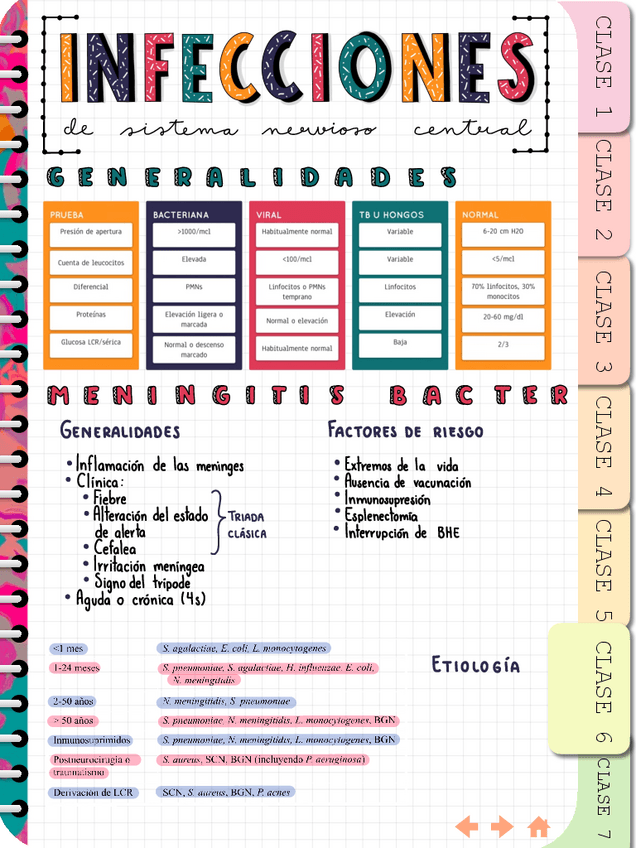 INFECCIONES
de sistema nervioso central
GENERALIDADES
PRUEBA BACTERIANA VIRAL TB U HONGOS NORMAL
Presión de apertura >1000/mcl Habitualmente normal Variable 6-20 cm H2O
Cuenta de leucocitos Elevada <100/mcl Variable <5/mcl
Diferencial PMNs Linfocitos o PMNs temprano Linfocitos 70% linfocitos, 30% monocitos
Proteínas Elevación ligera o marcada Normal o elevación Elevación 20-60 mg/dl
Glucosa LCR/sérica Normal o descenso marcado Habitualmente normal Baja 2/3
MENINGITIS BACTER
GENERALIDADES
• Inflamación de las meninges
• Clínica:
• Fiebre
• Alteración del estado
de alerta
• Cefalea
TRIADA
CLÁSICA
• Irritación meníngea
• Signo del trípode
• Aguda o crónica (4s)
FACTORES DE RIESGO
• Extremos de la vida
• Ausencia de vacunación
• Inmunosupresión
• Esplenectomía
• Interrupción de BHE
ETIOLOGÍA
<1 mes S. agalactiae, E. coli, L. monocytogenes
1-24 meses S. pneumoniae, S. agalactiae, H. influenzae, E. coli,
N. meningitidis
2-50 años N. meningitidis, S. pneumoniae
> 50 años S. pneumoniae, N. meningitidis, L. monocytogenes, BGN
Inmunosuprimidos S. pneumoniae, N. meningitidis, L. monocytogenes, BGN
Postneurocirugía o S. aureus, SCN, BGN (incluyendo P. aeruginosa)
traumatismo
Derivación de LCR SCN, S. aureus, BGN, P. acnes
CLASE 1
CLASE 2
CLASE 3
CLASE 4
CLASE 5
CLASE 6
CLASE 7